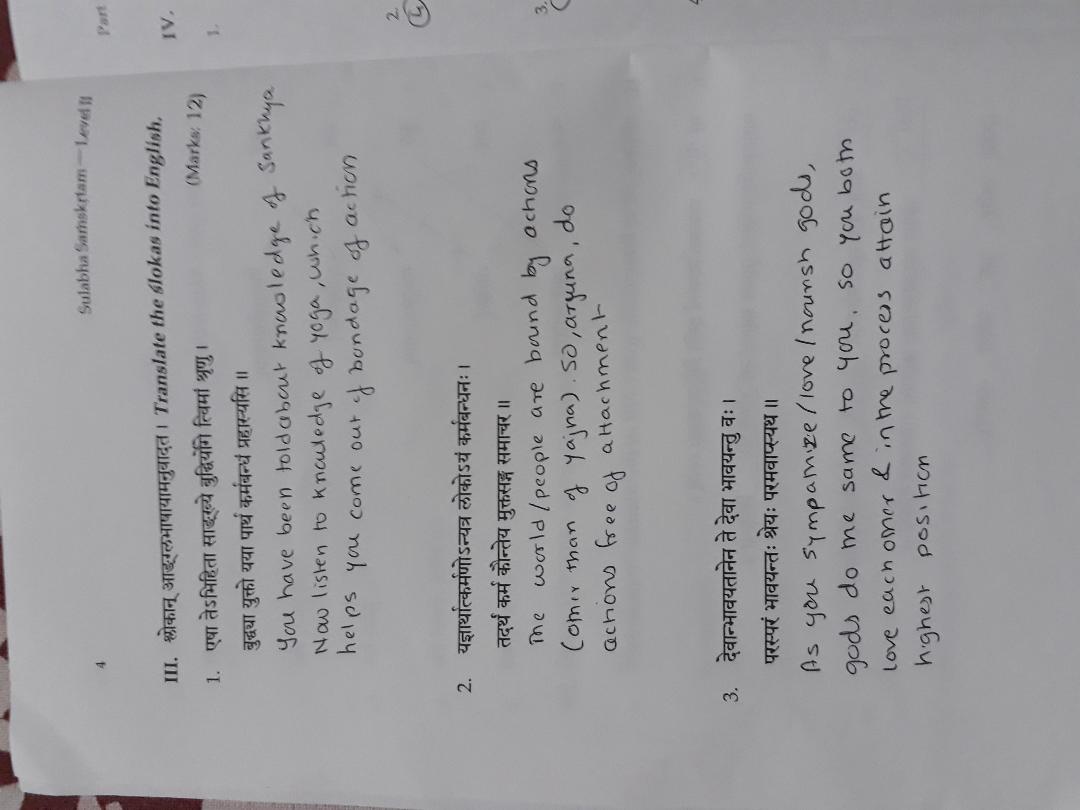 Sulabha Saṁskṛtam — Level II
4
III. श्लोकान् आङ्ग्लभाषायामनुवादत । Translate the ślokas into English.
(Marks: 12)
1. एषा तेऽभिहिता साङ्ख्ये बुद्धिर्योगे त्विमां श्रृणु ।
बुद्ध्या युक्तो यया पार्थ कर्मबन्धं प्रहास्यसि ॥
You have been told about knowledge of Sankhya
Now listen to knowledge of yoga, which
helps you come out of bondage of action
2. यज्ञार्थात्कर्मणोऽन्यत्र लोकोऽयं कर्मबन्धनः ।
तदर्थं कर्म कौन्तेय मुक्तसङ्ग समाचर ॥
The world/people are bound by actions
(other than of yajna). So, arjuna, do
actions free of attachment
3. देवान्भावयतानेन ते देवा भावयन्तु वः ।
परस्परं भावयन्तः श्रेयः परमवाप्स्यथ ॥
As you sympathize/love/nourish gods,
gods do the same to you. so you both
love each other & in the process attain
highest position
Part
IV.
1.
2.
3.